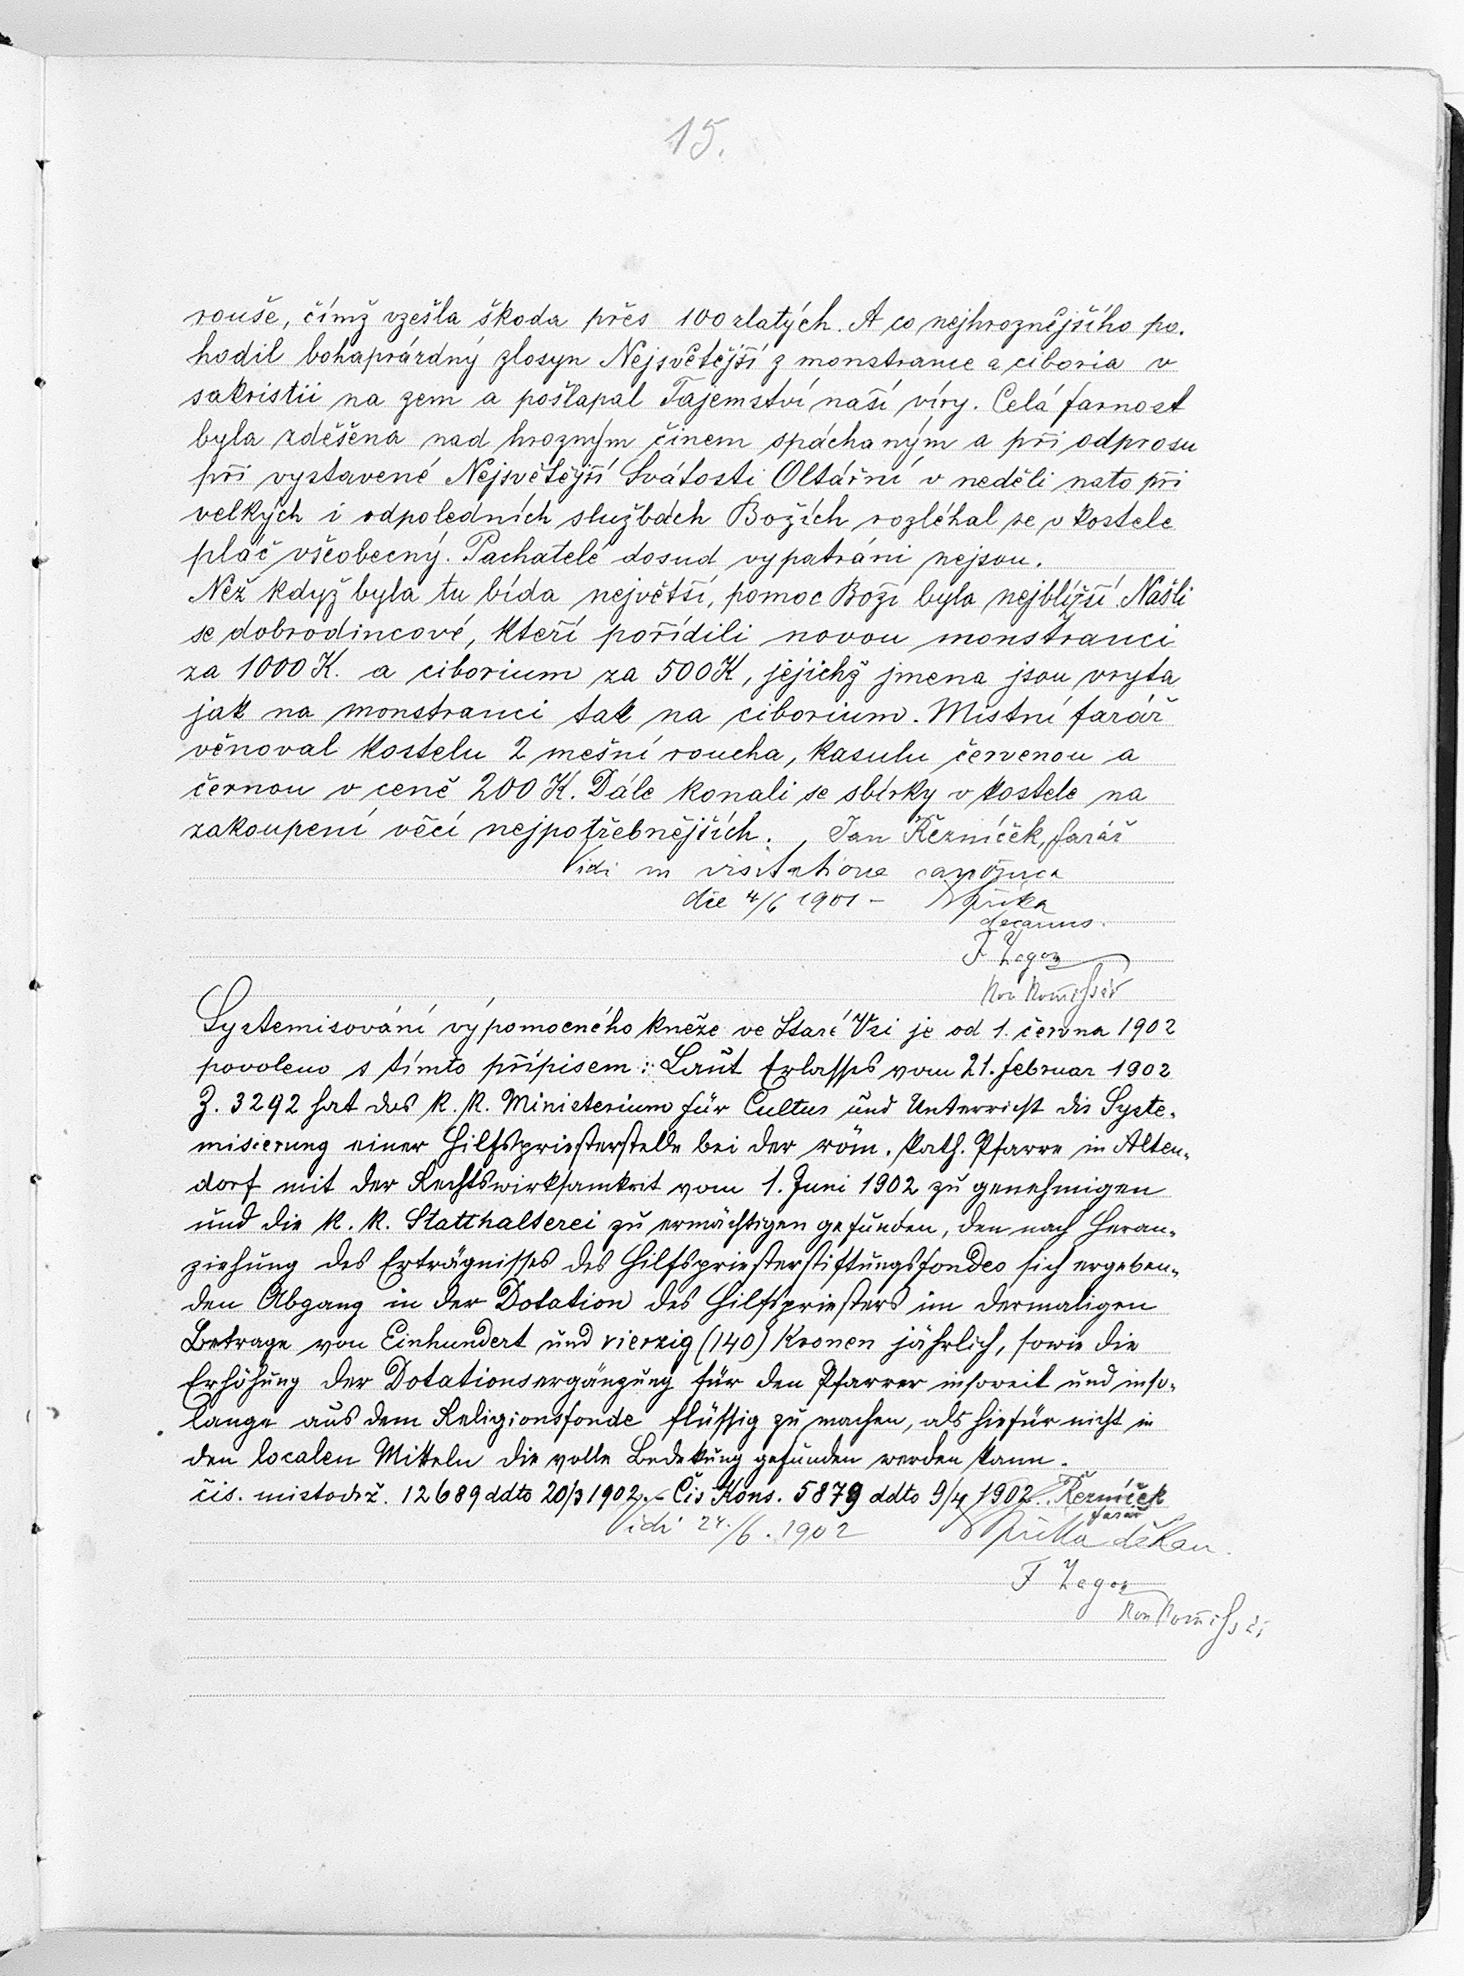 15.
rouše, čímž vzešla škoda přes 100 zlatých. A co nejhroznějšího po-
hodil bohaprázdný zlosyn Nejsvětější z monstrance a ciboria v
sakristii na zem a pošlapal Tajemství naší víry. Celá farnost
byla zděšena nad hrozným činem spáchaným a při odprosu
při vystavené Nejsvětější Svátosti Oltářní v neděli nato při
velkých i odpoledních službách Božích rozléhal se v kostele
pláč všeobecný. Pachatelé dosud vypatráni nejsou.
Než když byla tu bída největší, pomoc Boží byla nejbližší. Našli
se dobrodincové, kteří pořídili novou monstranci
za 1000 K. a ciborium za 500 K, jejichž jmena jsou vryta
jak na monstranci tak na ciborium. Místní farář
věnoval kostelu 2 mešní roucha, kasulu červenou a
černou v ceně 200 K. Dále konali se sbírky v kostele na
zakoupení věcí nejpotřebnějších. Jan Řezníček, farář
Vidi in visitatione canonica
die 4/6 1901 –
decanus.
Systemisování výpomocného kněze ve Staré Vsi je od 1. června 1902
povoleno s tímto přípisem: Laut Erlasses vom 21. Februar 1902
Z. 3292 hat das k. k. Ministerium für Cultus und Unterricht die Syste-
misierung einer Hilfspriesterstelle bei der röm. kath. Pfarre in Alten-
dorf mit der Rechtswirksamkeit vom 1. Juni 1902 zu genehmigen
und die k. k. Statthalterei zu ermächtigen gefunden, den nach Heran-
ziehung des Erträgnisses des Hilfspriesterstiftungsfondes sich ergeben-
den Abgang in der Dotation des Hilfspriesters im dermaligen
Betrage von Einhundert und vierzig (140) Kronen jährlich, sowie die
Erhöhung der Dotationsergänzung für den Pfarrer insoweit und inso-
lange aus dem Religionsfonde flüssig zu machen, als hiefür nicht in
den localen Mitteln die volle Bedekung gefunden werden kann.
čis. mistodrž. 12689 ddto 20/3 1902. – Čis Kons. 5879 ddto 9/4 1902. Řezníček
farář
Vidi 24./6. 1902 děkan.